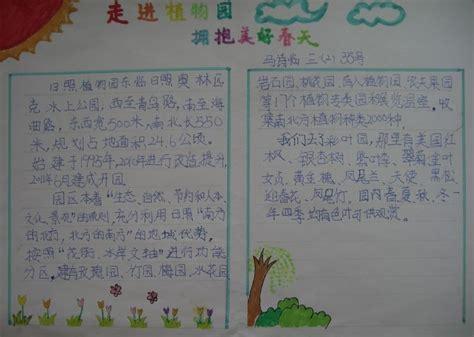 走进植物园
拥抱美好春天
马诗 三(2) 35号
日照植物园东临日照奥林匹
克水上公园,西至青岛路,南至海
曲路,东西宽500米,南北长550
米,规划占地面积24.6公顷。
始建于1995年,2010年进行改造提升,
2011年6月建成开园。
园区本着“生态、自然、节约和人本
文化景观”的原则,充分利用日照“南方
的北方,北方的南方”的地域优势,
按照“茂街、本年文抽”进行功能
分区,建有玫瑰园、竹园、梅园、水花园
岩石园、桃花园、盲人植物园、农夫果园
等17个植物专类园和展览温室,收
集南北方植物种类2000种。
我们去了彩叶园,那里有美国红
枫、银杏树、紫叶李、翠菊、叶
女贞、黄金槐、凤尾兰、天使、黑松
迎春花、凤尾竹,园内春、夏、秋、冬一
年四季均有色叶可供观赏。